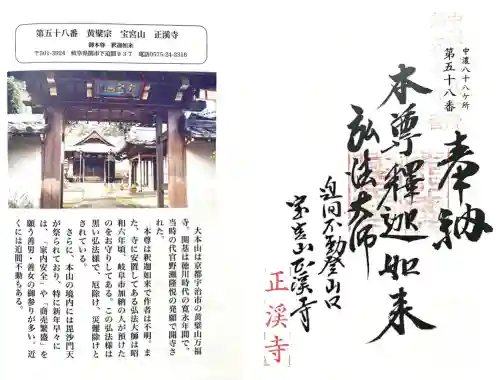 第五十八番　黄檗宗　宝宮山　正渓寺
御本尊　釈迦如来
〒501-3924　岐阜県関市下迫間937　電話0575-24-2316
大本山は京都宇治市の黄檗山万福
寺。開基は徳川時代の寛永年間で、
当時の代官野瀬隆悦の発願で開寺さ
れた。
本尊は釈迦如来で作者は不明。ま
た、寺に安置してある弘法大師は昭
和六年頃、岐阜市加納の人が預けた
のをお守りしてある。この弘法様は
黒い弘法様で、厄除け、災難除けと
されている。
さらに、本山の境内には毘沙門天
が祭られており、特に新年早々に
は、「家内安全」や「商売繁盛」を
願う善男・善女の御参りが多い。近
くには迫間不動もある。
中濃八十八ヶ所
第五十八番
奉納
本尊釋迦如来
弘法大師
迫間不動登山口
宝宮山正渓寺
正渓寺